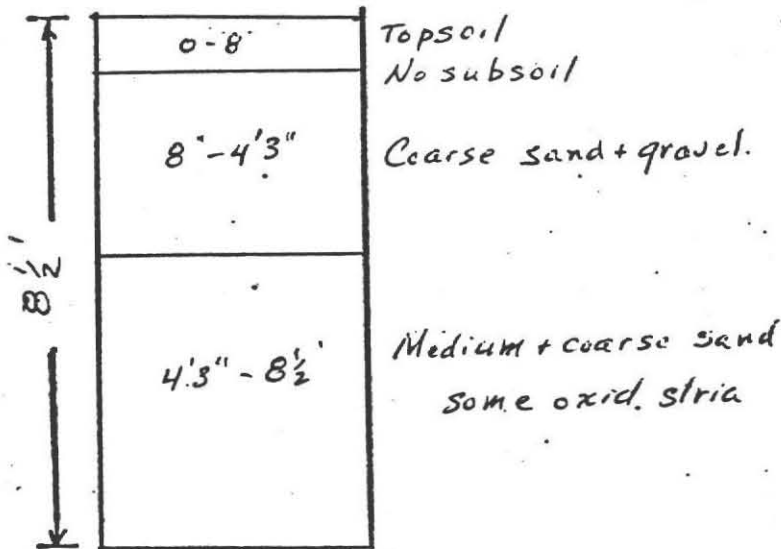 0-8
Topsoil
No subsoil
8" - 4'3"
Coarse sand + gravel.
8½'
4'3" - 8½'
Medium + coarse sand
some oxid. stria